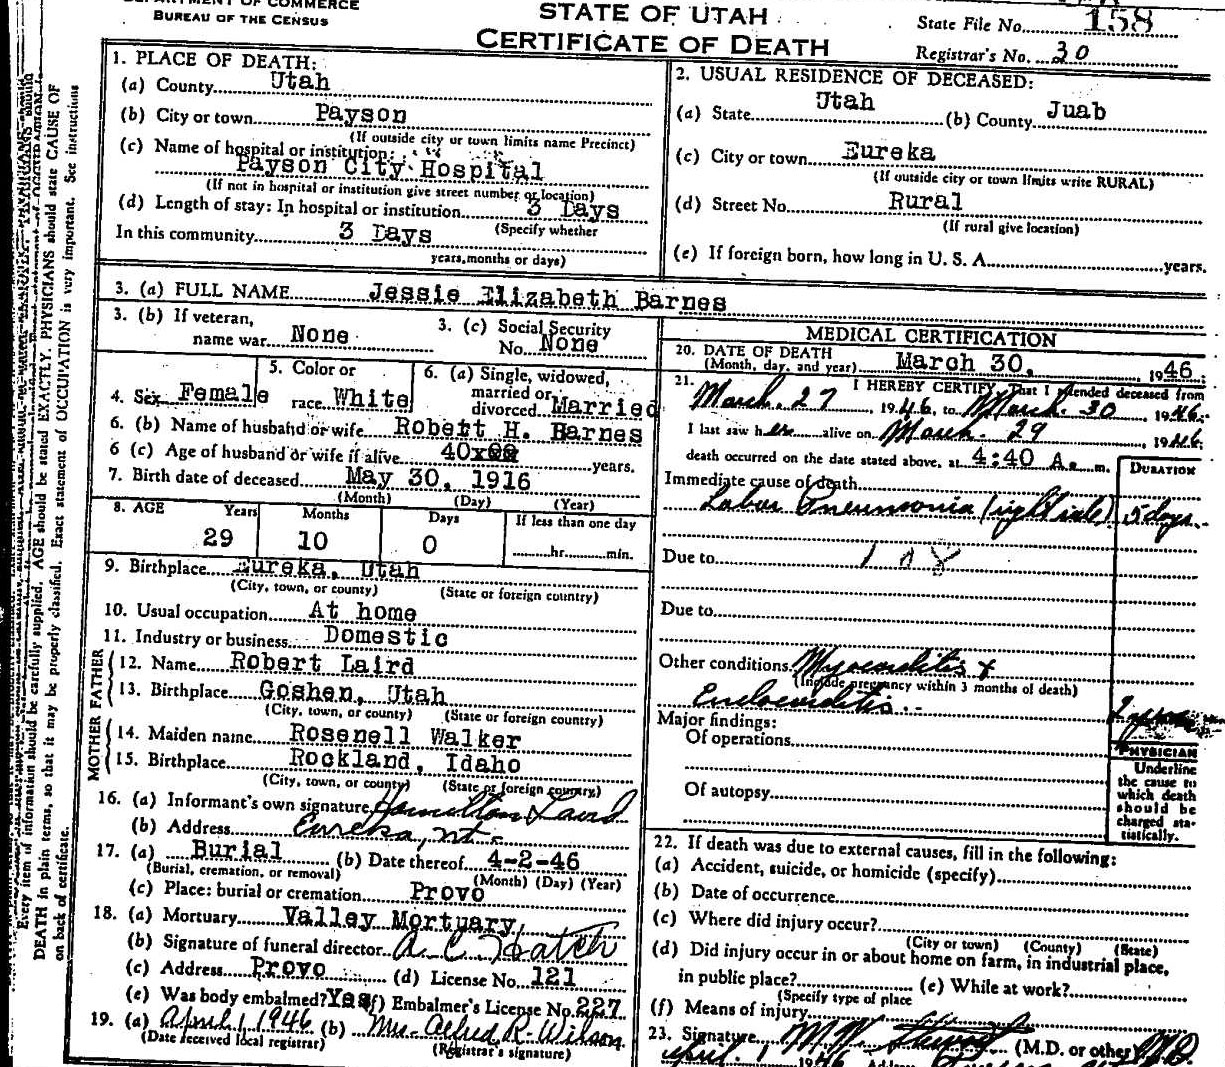 DEPARTMENT OF COMMERCE
BUREAU OF THE CENSUS
STATE OF UTAH
CERTIFICATE OF DEATH
State File No. 158
Registrar's No. 30
1. PLACE OF DEATH:
(a) County Utah
(b) City or town Payson
(If outside city or town limits name Precinct)
(c) Name of hospital or institution:
Payson City Hospital
(If not in hospital or institution give street number or location)
(d) Length of stay: In hospital or institution 3 Days
(Specify whether
In this community 3 Days
years, months or days)
2. USUAL RESIDENCE OF DECEASED:
(a) State Utah (b) County Juab
(c) City or town Eureka
(If outside city or town limits write RURAL)
(d) Street No. Rural
(If rural give location)
(e) If foreign born, how long in U. S. A. years.
3. (a) FULL NAME Jessie Elizabeth Barnes
3. (b) If veteran,
name war None
3. (c) Social Security
No. None
4. Sex Female
5. Color or
race White
6. (a) Single, widowed,
married or
divorced Married
6. (b) Name of husband or wife Robert H. Barnes
6 (c) Age of husband or wife if alive 40 years.
7. Birth date of deceased May 30, 1916
(Month) (Day) (Year)
8. AGE Years Months Days If less than one day
29 10 0 hr. min.
9. Birthplace Eureka, Utah
(City, town, or county) (State or foreign country)
10. Usual occupation At home
11. Industry or business Domestic
FATHER
12. Name Robert Laird
13. Birthplace Goshen, Utah
(City, town, or county) (State or foreign country)
MOTHER
14. Maiden name Rosenell Walker
15. Birthplace Rockland, Idaho
(City, town, or county) (State or foreign country)
16. (a) Informant's own signature Hamilton Laird
(b) Address Eureka, Ut.
17. (a) Burial (b) Date thereof 4-2-46
(Burial, cremation, or removal) (Month) (Day) (Year)
(c) Place: burial or cremation Provo
18. (a) Mortuary Valley Mortuary
(b) Signature of funeral director A. C. Hatch
(c) Address Provo (d) License No. 121
(e) Was body embalmed? Yes (f) Embalmer's License No. 227
19. (a) April 1, 1946 (b) Mrs. Alfred R. Wilson
(Date received local registrar) (Registrar's signature)
MEDICAL CERTIFICATION
20. DATE OF DEATH
(Month, day, and year) March 30, 1946.
21. I HEREBY CERTIFY, That I attended deceased from
March. 27 1946, to March. 30 1946.
I last saw her alive on March. 29, 1946
death occurred on the date stated above, at 4:40 A. m.
DURATION
Immediate cause of death
Lobar Pneumonia (right side) 5 days.
Due to 108
Due to
Other conditions Myocarditis &
(Include pregnancy within 3 months of death)
Endocarditis.
Major findings:
Of operations
Of autopsy
PHYSICIAN
Underline
the cause to
which death
should be
charged sta-
tistically.
22. If death was due to external causes, fill in the following:
(a) Accident, suicide, or homicide (specify)
(b) Date of occurrence
(c) Where did injury occur?
(City or town) (County) (State)
(d) Did injury occur in or about home on farm, in industrial place,
in public place? (e) While at work?
(Specify type of place
(f) Means of injury
23. Signature M. W. (M.D. or other) M.D.
April. 1 1946
Every item of information should be carefully supplied. AGE should be stated EXACTLY. PHYSICIANS should state CAUSE OF
DEATH in plain terms, so that it may be properly classified. Exact statement of OCCUPATION is very important. See instructions
on back of certificate.